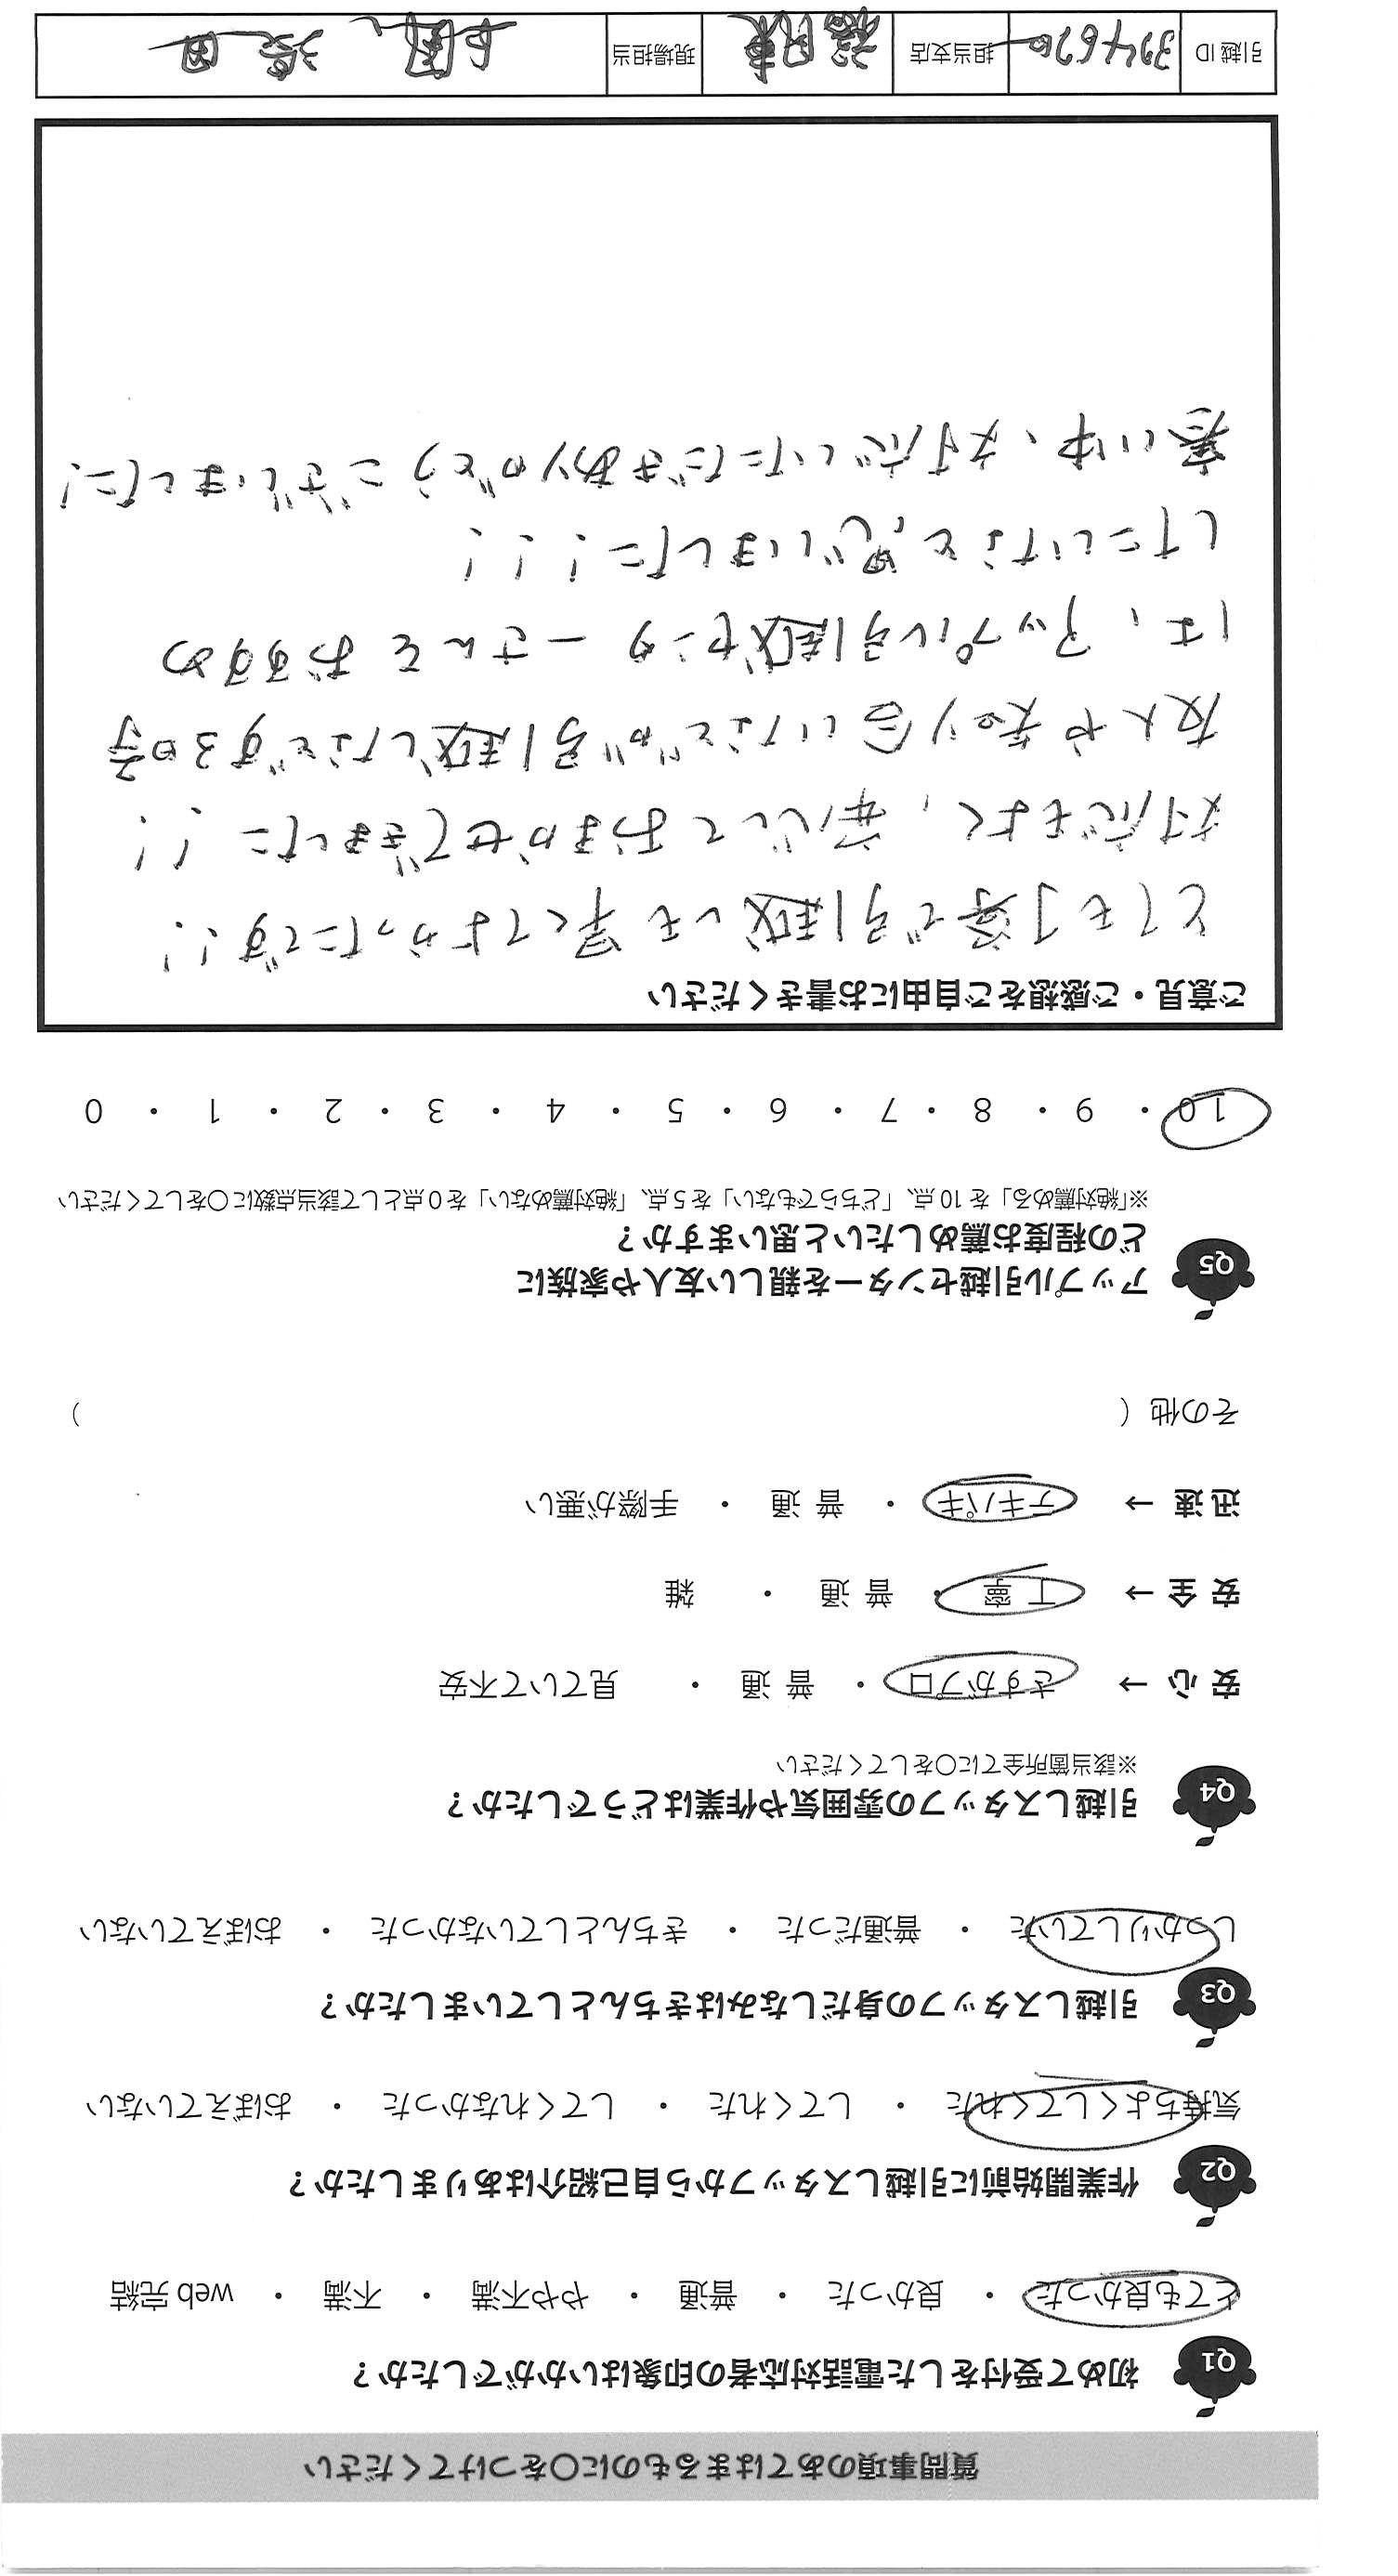 質問事項のあてはまるものに〇をつけてください
Q1 初めて受付をした電話対応者の印象はいかがでしたか？
とても良かった ・ 良かった ・ 普通 ・ やや不満 ・ 不満 ・ web 完結
Q2 作業開始前に引越しスタッフから自己紹介はありましたか？
気持ちよくしてくれた ・ してくれた ・ してくれなかった ・ おぼえていない
Q3 引越しスタッフの身だしなみはきちんとしていましたか？
しっかりしていた ・ 普通だった ・ きちんとしていなかった ・ おぼえていない
Q4 引越しスタッフの雰囲気や作業はどうでしたか？
※該当箇所全てに〇をしてください
安 心 → さすがプロ ・ 普 通 ・ 見ていて不安
安 全 → 丁 寧 ・ 普 通 ・ 雑
迅 速 → テキパキ ・ 普 通 ・ 手際が悪い
その他（ ）
Q5 アップル引越センターを親しい友人や家族に
どの程度お薦めしたいと思いますか？
※「絶対薦める」を 10 点、「どちらでもない」を 5 点、「絶対薦めない」を 0 点として該当点数に〇をしてください
10 ・ 9 ・ 8 ・ 7 ・ 6 ・ 5 ・ 4 ・ 3 ・ 2 ・ 1 ・ 0
ご意見・ご感想をご自由にお書きください
とても丁寧で引越しも早くてよかったです!!
対応もよく、安心しておまかせできました!!
友人や知り合いなどが引越しなどする時
は、アップル引越センターさんをおすすめ
したいなと思いました!!!
寒い中、対応いただきありがとうございました!
引越 ID 担当支店 福岡東 現場担当